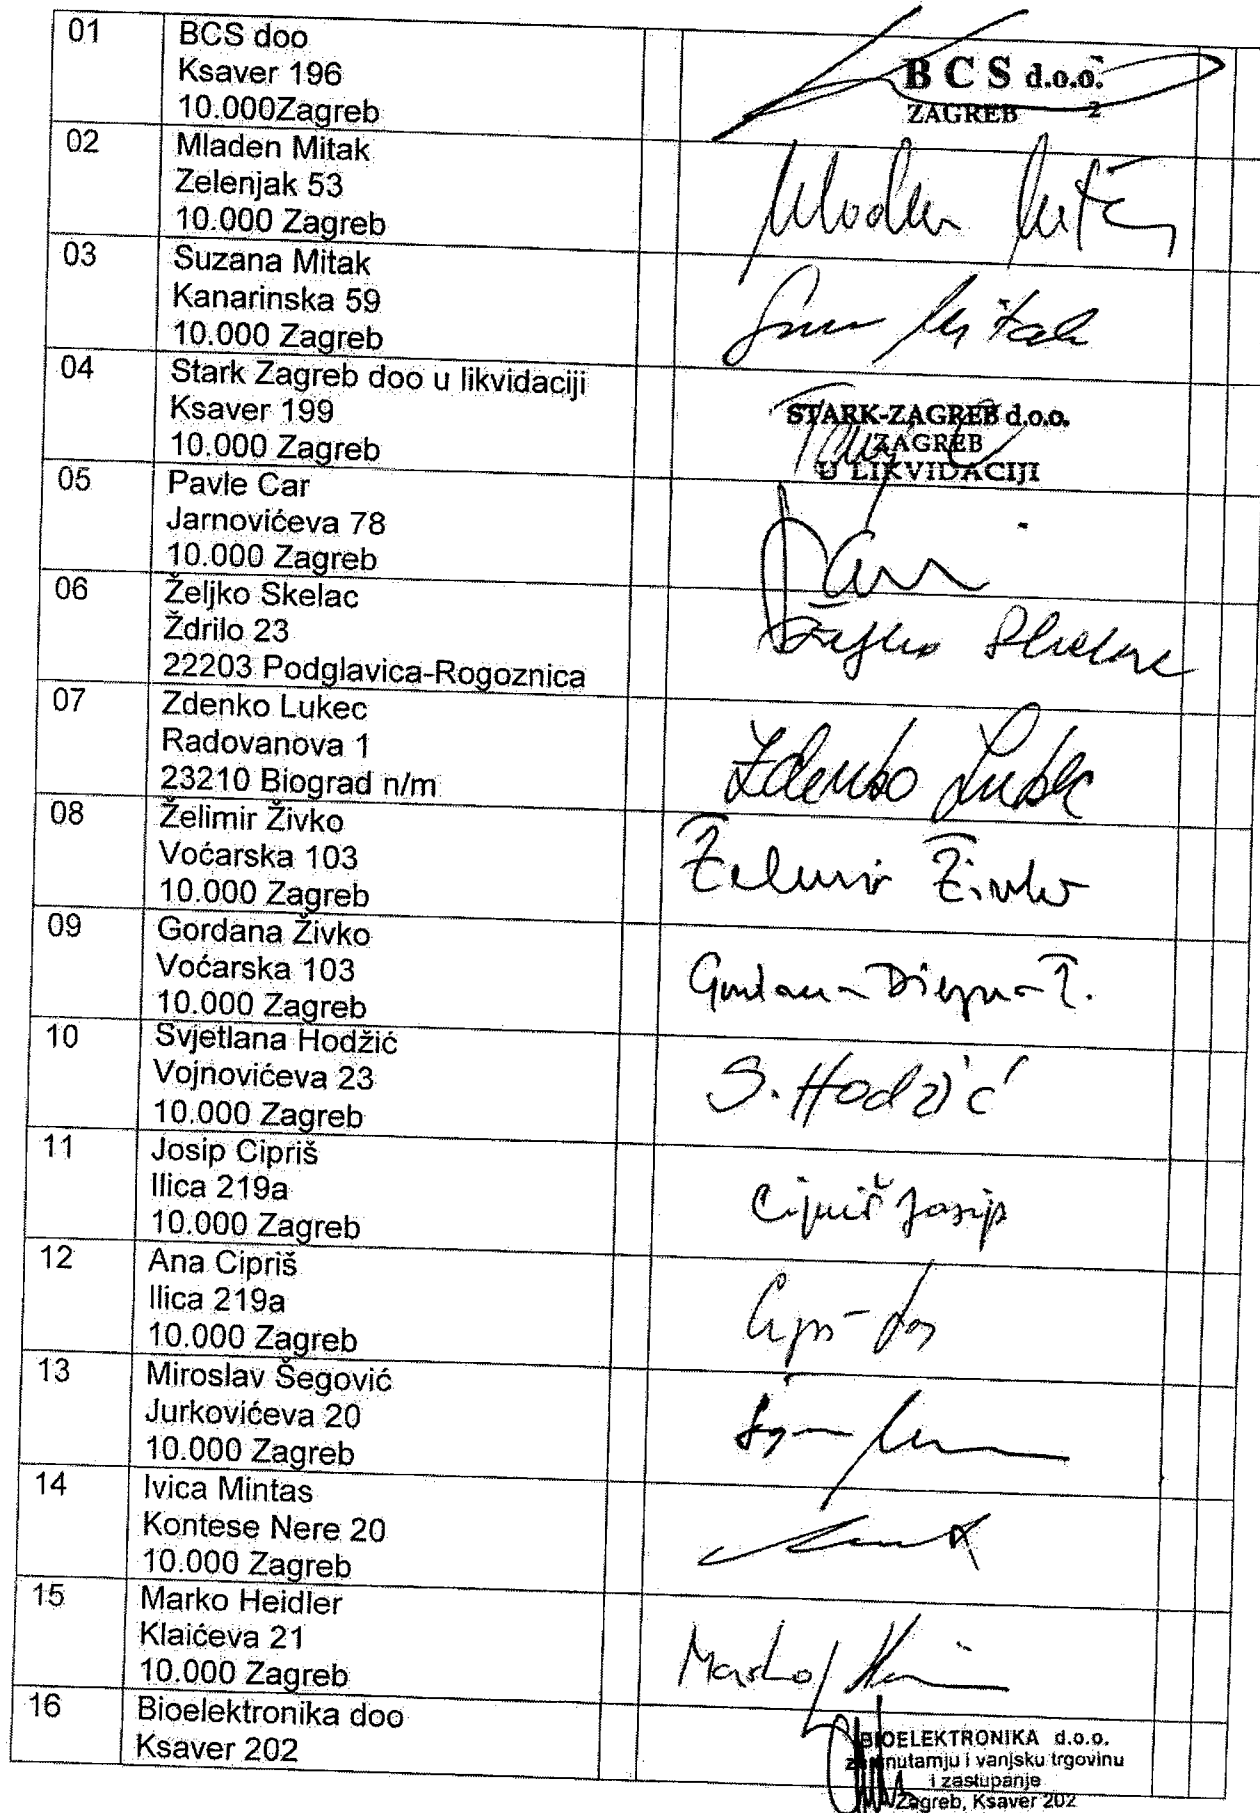 01
BCS doo
Ksaver 196
10.000Zagreb
B C S d.o.o.
ZAGREB 2
02
Mladen Mitak
Zelenjak 53
10.000 Zagreb
Mladen
03
Suzana Mitak
Kanarinska 59
10.000 Zagreb
Mitak
04
Stark Zagreb doo u likvidaciji
Ksaver 199
10.000 Zagreb
STARK-ZAGREB d.o.o.
ZAGREB
U LIKVIDACIJI
05
Pavle Car
Jarnovićeva 78
10.000 Zagreb
06
Željko Skelac
Ždrilo 23
22203 Podglavica-Rogoznica
Željko Skelac
07
Zdenko Lukec
Radovanova 1
23210 Biograd n/m
Zdenko Lukec
08
Želimir Živko
Voćarska 103
10.000 Zagreb
Želimir Živko
09
Gordana Živko
Voćarska 103
10.000 Zagreb
Gordana
10
Svjetlana Hodžić
Vojnovićeva 23
10.000 Zagreb
S. Hodžić
11
Josip Cipriš
Ilica 219a
10.000 Zagreb
Cipriš Josip
12
Ana Cipriš
Ilica 219a
10.000 Zagreb
13
Miroslav Šegović
Jurkovićeva 20
10.000 Zagreb
14
Ivica Mintas
Kontese Nere 20
10.000 Zagreb
15
Marko Heidler
Klaićeva 21
10.000 Zagreb
Marko
16
Bioelektronika doo
Ksaver 202
BIOELEKTRONIKA d.o.o.
i vanjsku trgovinu
i zastupanje
Zagreb, Ksaver 202